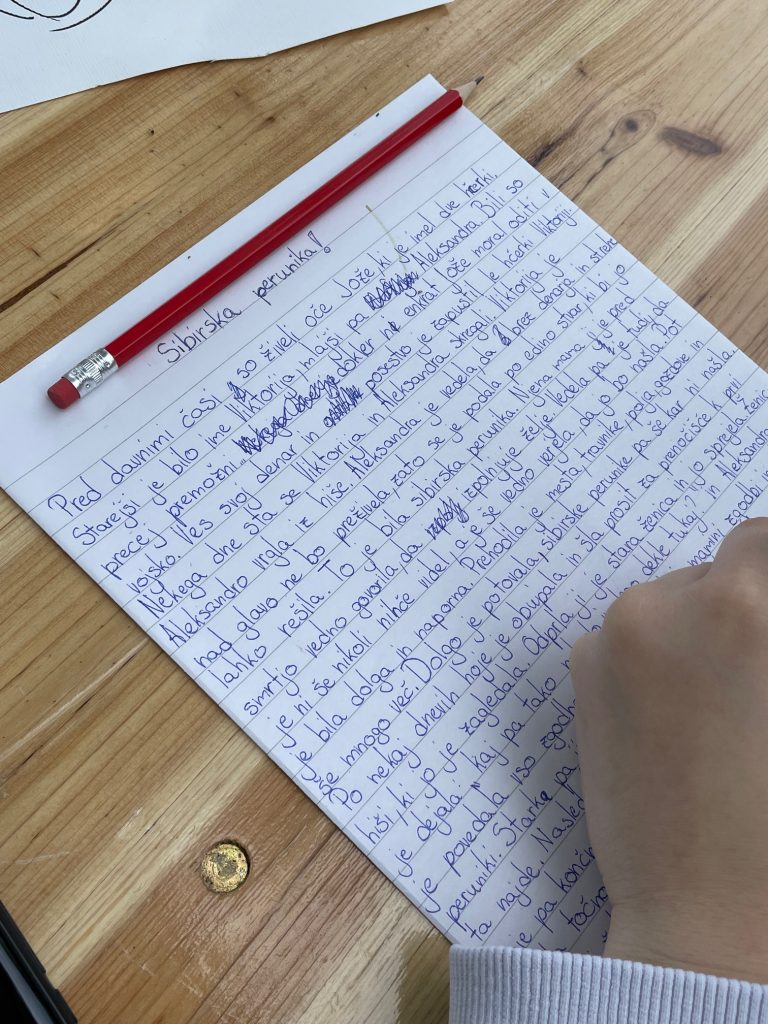 Sibirska perunika!
Pred davnimi časi so živeli oče Jože ki je imel dve hčerki.
Starejši je bilo ime Viktorija, mlajši pa Aleksandra. Bili so
precej premožni dokler ni enkrat Jože moral oditi v
vojsko. Ves svoj denar in posestvo je zapustil le hčerki Viktoriji.
Nekega dne sta se Viktorija in Aleksandra skregali. Viktorija je
Aleksandro vrgla iz hiše. Aleksandra je vedela, da brez denarja in strehe
nad glavo ne bo preživela, zato se je podala po edino stvar ki bi jo
lahko rešila. To je bila sibirska perunika. Njena mama ji je pred
smrtjo vedno govorila, da izpolnjuje želje. Vedela pa je tudi, da
je ni še nikoli nihče videl, a je še vedno verjela, da jo bo našla. Pot
je bila dolga in naporna. Prehodila je mesta, travnike, polja, gozdove in
še mnogo več. Dolgo je potovala, sibirske perunike pa še kar ni našla.
Po nekaj dnevih hoje je obupala in šla prosit za prenočišče k prvi
hiši, ki jo je zagledala. Odprla ji je stara ženica in jo sprejela. Ženica
je dejala "kaj pa tako dete tukaj?" in Aleksandra
je povedala vso zgodbo maminih zgodbi
peruniki. Starka pa ji
ta najde. Nasled
je pa konča
točno